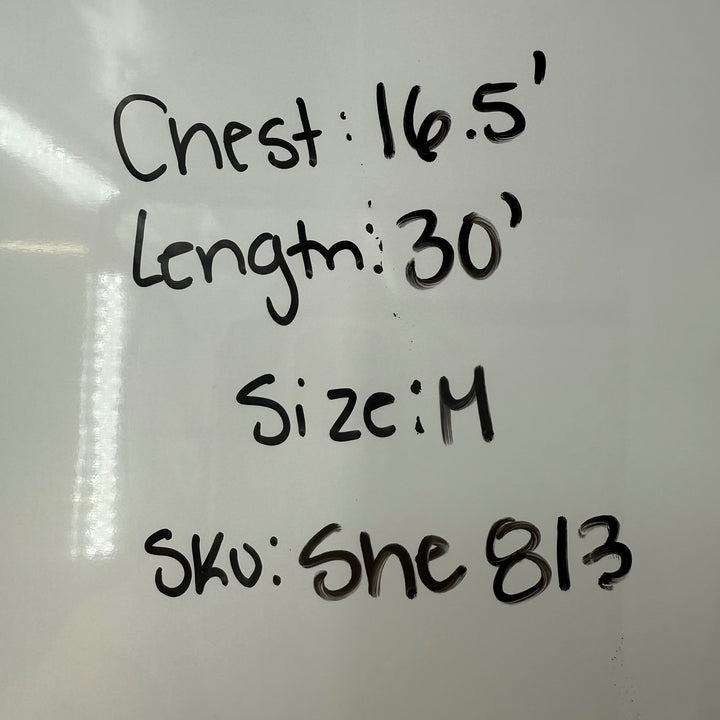 Chest: 16.5'
Length: 30'
Size: M
SKU: She 813